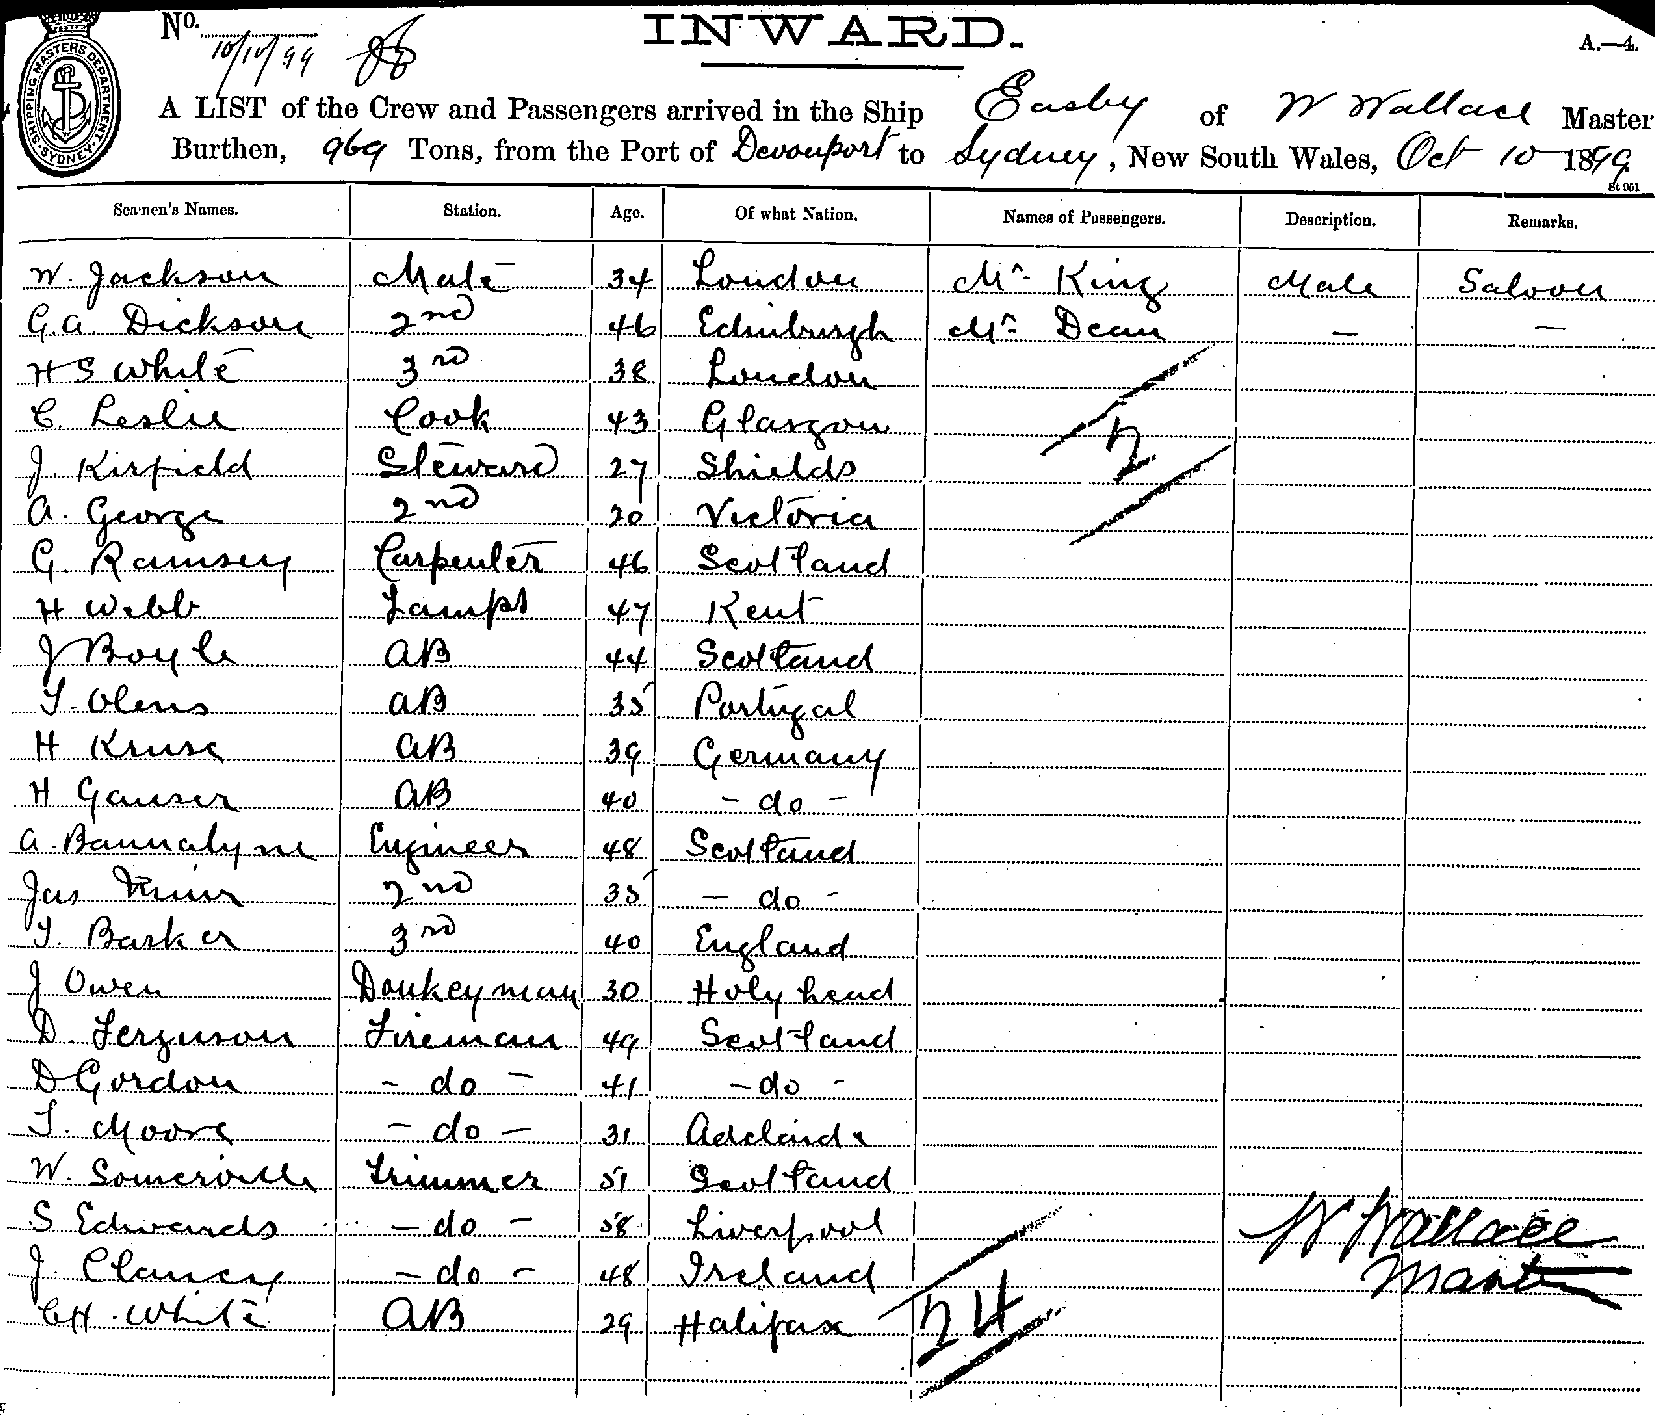 No. 10/10/99
INWARD.
A.—4.
SHIPPING MASTERS DEPARTMENT. SYDNEY.
A LIST of the Crew and Passengers arrived in the Ship Easby of W Wallace Master
Burthen, 969 Tons, from the Port of Devonport to Sydney, New South Wales, Oct 10 1899
St 961
Seamen's Names. Station. Age. Of what Nation. Names of Passengers. Description. Remarks.
W. Jackson Mate 34 London Mr King Male Saloon
G.A. Dickson 2nd 46 Edinburgh Mr Dean — —
H S White 3rd 38 London
C. Leslie Cook 43 Glasgow 2
J. Kirfield Steward 27 Shields
A. George 2nd 20 Victoria
G. Ramsey Carpenter 46 Scotland
H Webb Lamps 47 Kent
J Boyle AB 44 Scotland
T. Olens AB 35 Portugal
H Kruse AB 39 Germany
H Ganser AB 40 - do -
A. Bannalyne Engineer 48 Scotland
Jas 2nd 35 - do -
T. Barker 3rd 40 England
J Owen Donkeyman 30 Holyhead
D. Ferguson Fireman 49 Scotland
D Gordon - do - 41 - do -
T. Moore - do - 31 Adelaide
W. Somerville Trimmer 51 Scotland
S Edwards - do - 58 Liverpool W Wallace
J. Clancy - do - 48 Ireland Master
C H. White AB 29 Halifax 24